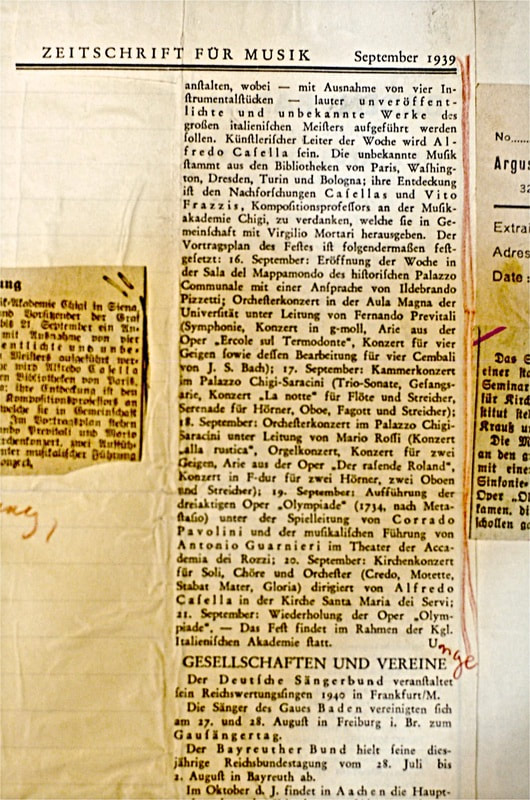 ZEITSCHRIFT FÜR MUSIK September 1939
anstalten, wobei — mit Ausnahme von vier In-
strumentalstücken — lauter unveröffent-
lichte und unbekannte Werke des
großen italienischen Meisters aufgeführt werden
sollen. Künstlerischer Leiter der Woche wird Al-
fredo Casella sein. Die unbekannte Musik
stammt aus den Bibliotheken von Paris, Washing-
ton, Dresden, Turin und Bologna; ihre Entdeckung
ist den Nachforschungen Casellas und Vito
Frazzis, Kompositionsprofessors an der Musik-
akademie Chigi, zu verdanken, welche sie in Ge-
meinschaft mit Virgilio Mortari herausgeben. Der
Vortragsplan des Festes ist folgendermaßen fest-
gesetzt: 16. September: Eröffnung der Woche in
der Sala del Mappamondo des historischen Palazzo
Communale mit einer Ansprache von Ildebrando
Pizzetti; Orchesterkonzert in der Aula Magna der
Universität unter Leitung von Fernando Previtali
(Symphonie, Konzert in g-moll, Arie aus der
Oper „Ercole sul Termodonte", Konzert für vier
Geigen sowie dessen Bearbeitung für vier Cembali
von J. S. Bach); 17. September: Kammerkonzert
im Palazzo Chigi-Saracini (Trio-Sonate, Gesangs-
arie, Konzert „La notte" für Flöte und Streicher,
Serenade für Hörner, Oboe, Fagott und Streicher);
18. September: Orchesterkonzert im Palazzo Chigi-
Saracini unter Leitung von Mario Rossi (Konzert
„alla rustica", Orgelkonzert, Konzert für zwei
Geigen, Arie aus der Oper „Der rasende Roland",
Konzert in F-dur für zwei Hörner, zwei Oboen
und Streicher); 19. September: Aufführung der
dreiaktigen Oper „Olympiade" (1734, nach Meta-
stasio) unter der Spielleitung von Corrado
Pavolini und der musikalischen Führung von
Antonio Guarnieri im Theater der Acca-
demia dei Rozzi; 20. September: Kirchenkonzert
für Soli, Chöre und Orchester (Credo, Motette,
Stabat Mater, Gloria) dirigiert von Alfredo
Casella in der Kirche Santa Maria dei Servi;
21. September: Wiederholung der Oper „Olym-
piade". — Das Fest findet im Rahmen der Kgl.
Italienischen Akademie statt. Unge
GESELLSCHAFTEN UND VEREINE
Der Deutsche Sängerbund veranstaltet
sein Reichswertungssingen 1940 in Frankfurt/M.
Die Sänger des Gaues Baden vereinigten sich
am 27. und 28. August in Freiburg i. Br. zum
Gausängertag.
Der Bayreuther Bund hielt seine dies-
jährige Reichsbundestagung vom 28. Juli bis
2. August in Bayreuth ab.
Im Oktober d. J. findet in Aachen die Haupt-
ung
sik-Akademie Chigi in Siena,
und Vorsitzender der Graf
bis 21. September ein An-
mit Ausnahme von vier
entlichte und unbe-
Meisters aufgeführt wer-
e wird Alfredo Casella
en Bibliotheken von Paris,
na; ihre Entdeckung ist den
Kompositionsprofessors an
welche sie in Gemeinschaft
Im Vortragsplan stehen
ando Previtali und Mario
rchenkonzert, zwei Auffüh-
nter musikalischer Führung
onzert.
No.....
Argus
32
Extrai
Adres
Date :
Das S
einer No
Seminar
für Kirch
stitut ste
Krauß u
Die M
an den g
mit eine
Sinfonie-
Oper „Ol
kamen, di
schollen g